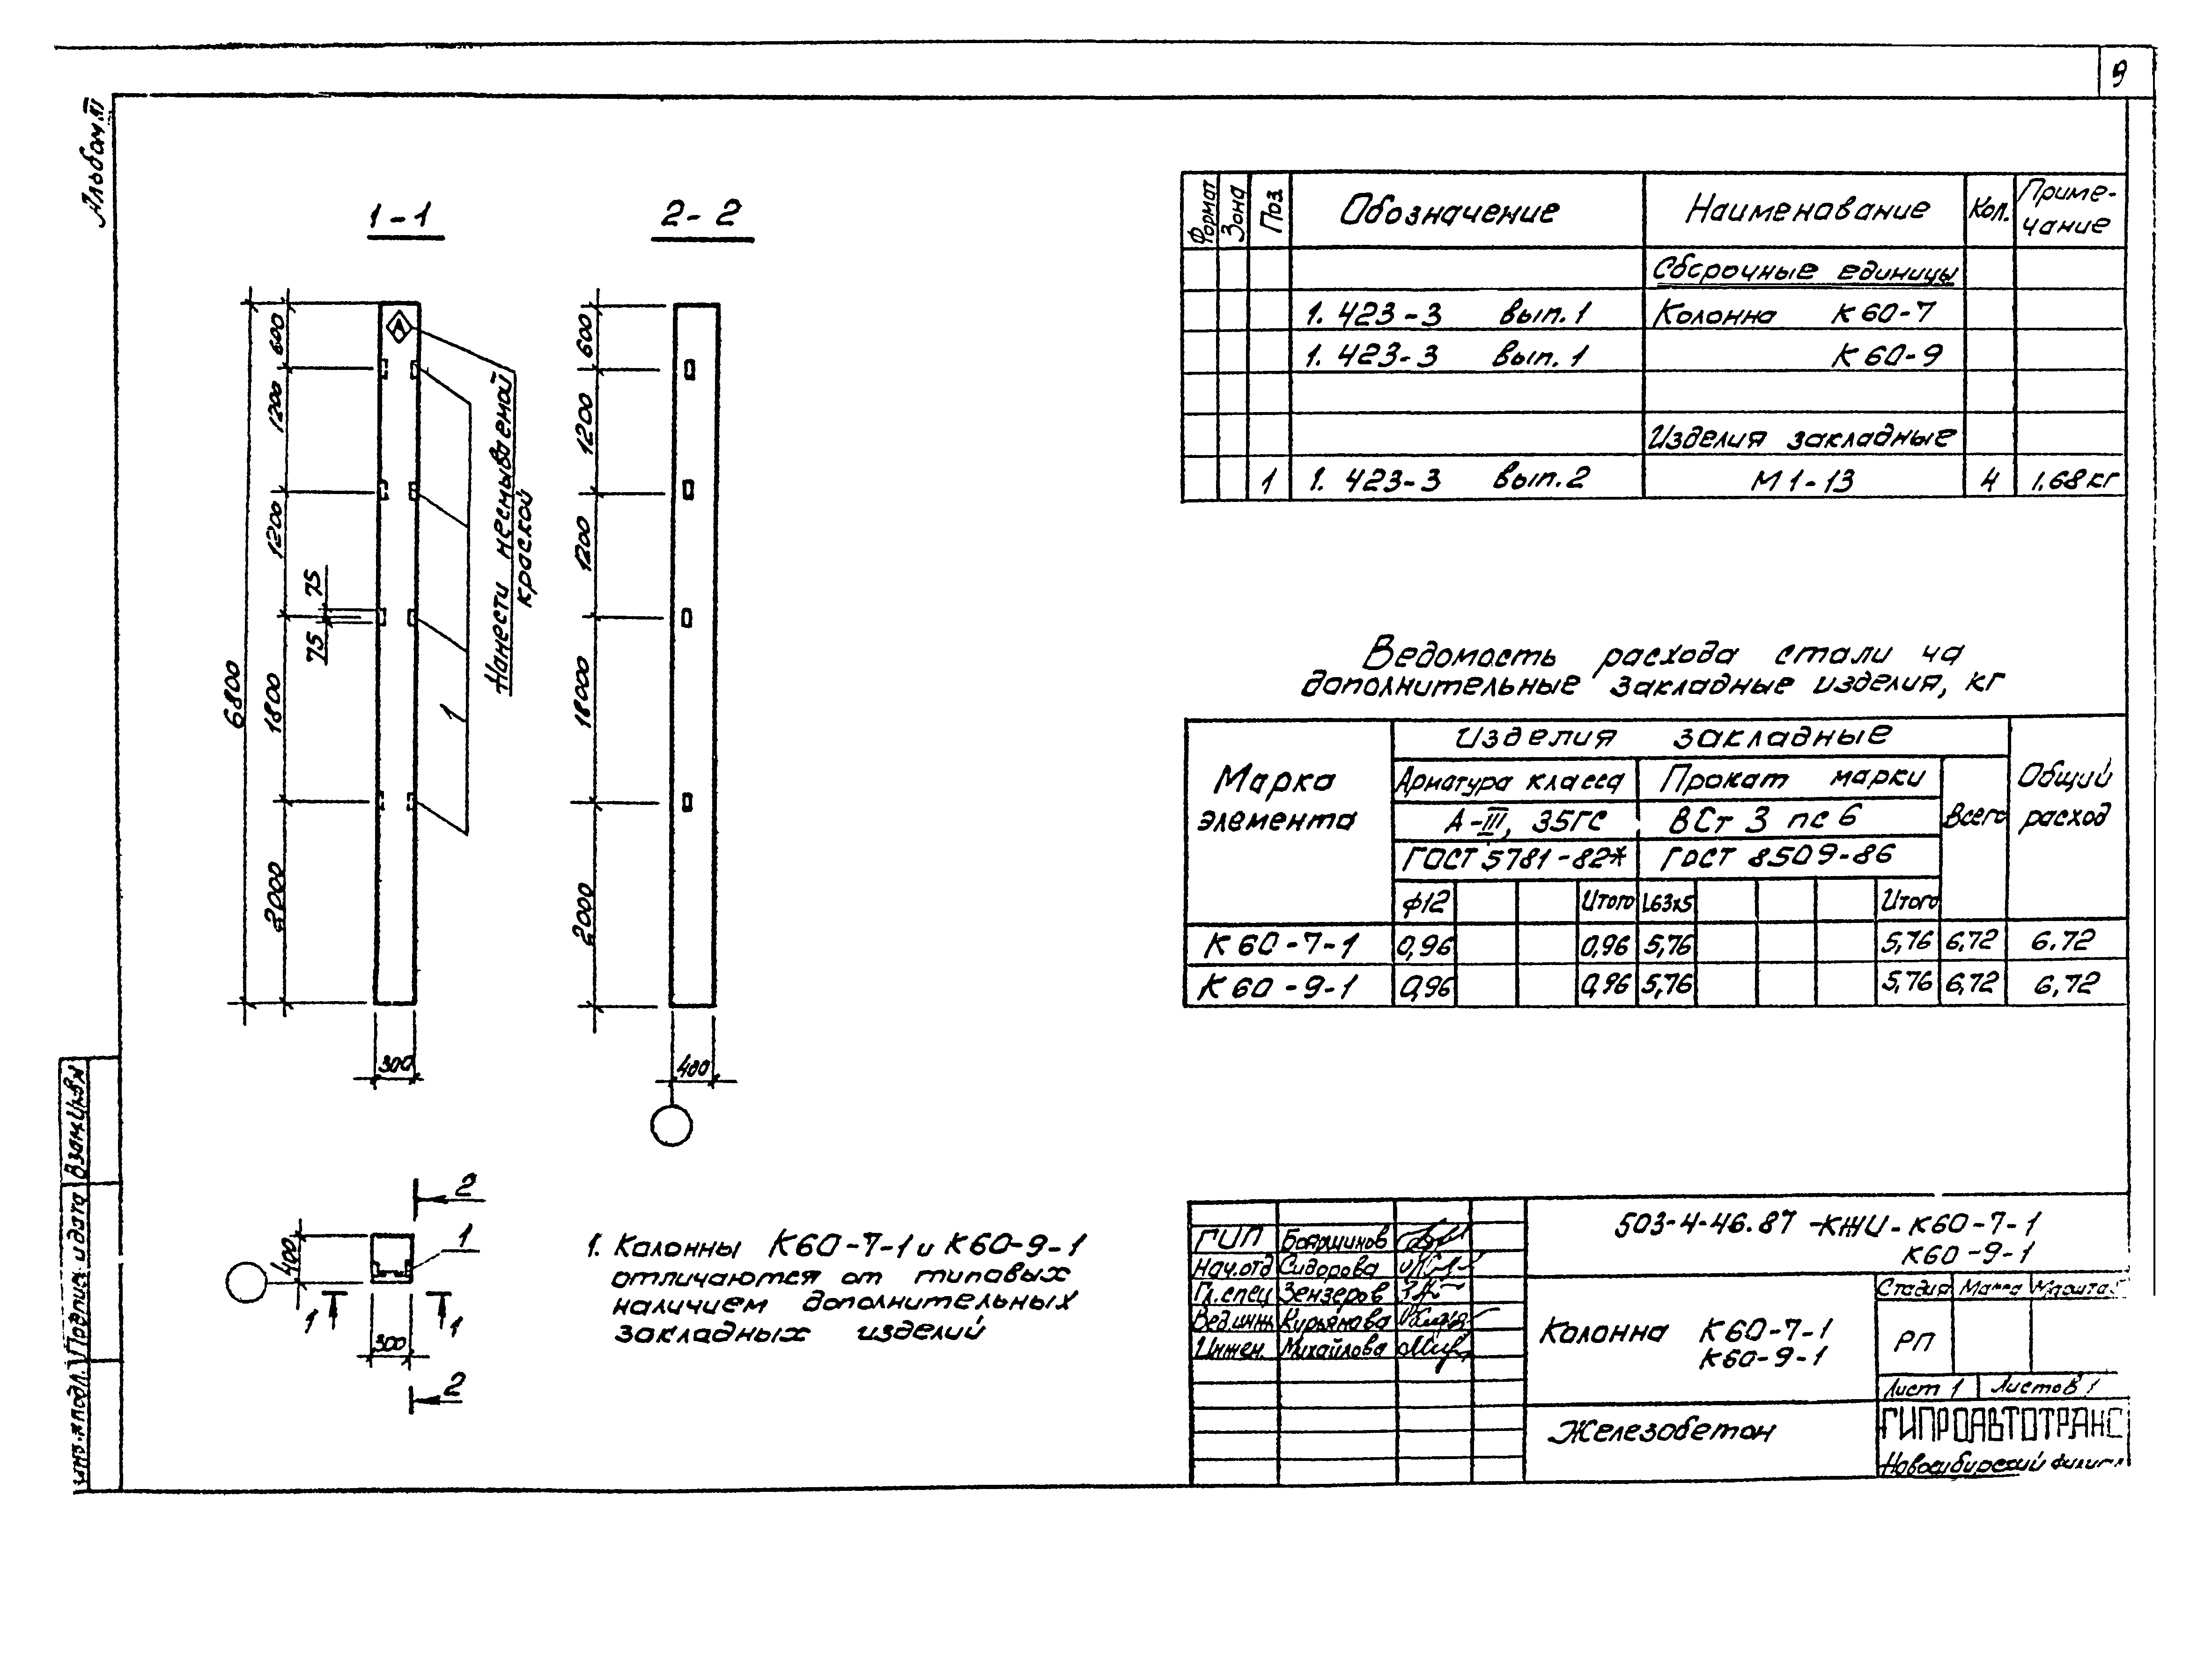 9
Альбом VI
1-1
2-2
600
1200
1200
1800
2000
6800
75
75
300
А
1
Нанести несмываемой
краской
600
1200
1200
18000
2000
400
2
1
400
1
1
300
2
1. Колонны К60-7-1 и К60-9-1
отличаются от типовых
наличием дополнительных
закладных изделий
Формат Зона Поз. Обозначение Наименование Кол. Приме-
чание
Сборочные единицы
1.423-3 вып.1 Колонна К60-7
1.423-3 вып.1 К60-9
Изделия закладные
1 1.423-3 вып.2 М1-13 4 1.68 кг
Ведомость расхода стали на
дополнительные закладные изделия, кг
Марка
элемента
Изделия закладные
Общий
расход
Арматура класса Прокат марки Всего
А-III, 35ГС ВСт 3 пс 6
ГОСТ 5781-82* ГОСТ 8509-86
ф12 Итого L63х5 Итого
К60-7-1 0,96 0,96 5,76 5,76 6,72 6.72
К60-9-1 0,96 0,96 5,76 5,76 6,72 6,72
503-4-46.87 -КЖИ-К60-7-1
К60-9-1
ГИП Бояршинов
Нач.отд Сидорова
Гл.спец Зензеров
Вед.инж Курьянова
Инжен. Михайлова
Колонна К60-7-1
К60-9-1
Стадия Масса Масштаб
РП
Лист 1 Листов 1
Железобетон
ГИПРОАВТОТРАНС
Новосибирский филиал
Инв.№подл. Подпись и дата Взам.инв.№